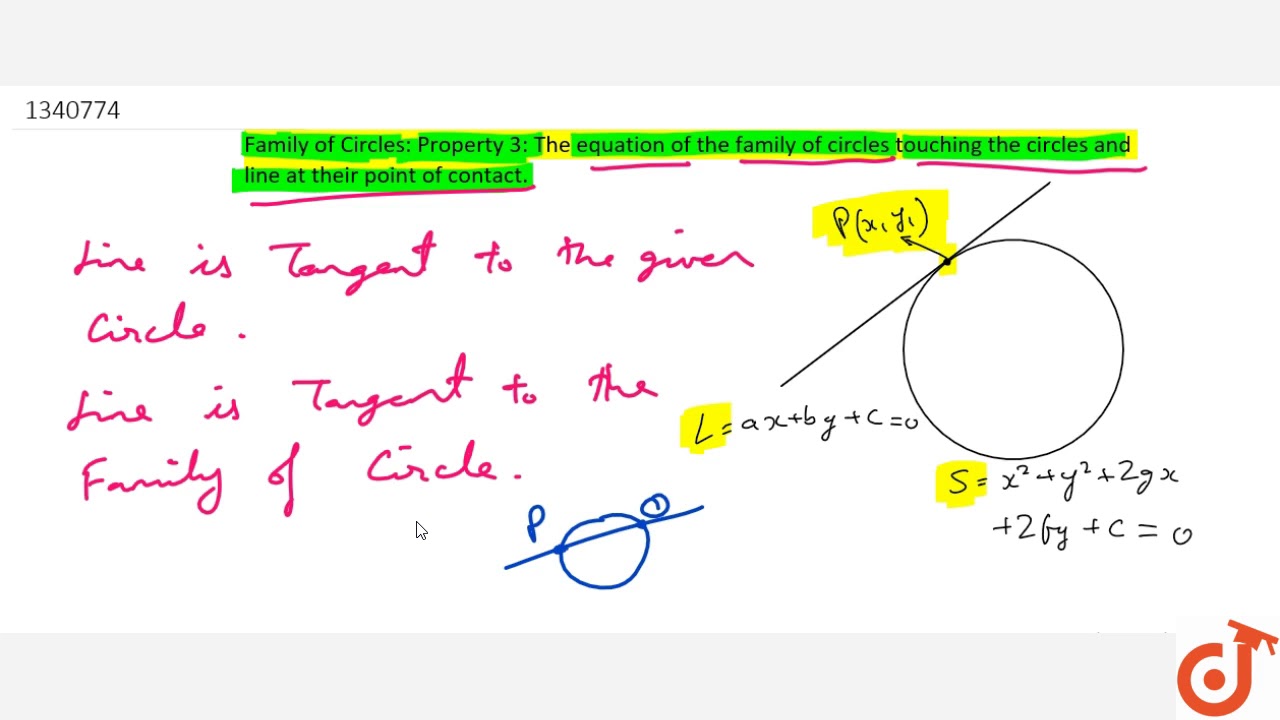 1340774
Family of Circles: Property 3: The equation of the family of circles touching the circles and
line at their point of contact.
P(x₁ y₁)
Line is Tangent to the given
Circle.
Line is Tangent to the
Family of Circle.
L = ax+by+c=0
S = x²+y²+2gx
+2fy+c=0
P
Q
d